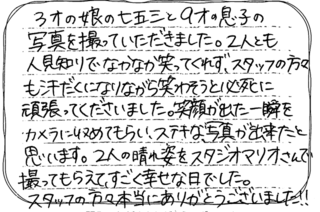 3才の娘の七五三と9才の息子の
写真を撮っていただきました。2人とも
人見知りでなかなか笑ってくれずスタッフの方々
も汗だくになりながら笑わそうと必死に
頑張ってくださいました。笑顔が出た一瞬を
カメラに収めてもらい、ステキな写真が出来たと
思います。2人の晴れ姿をスタジオマリオさんで
撮ってもらえて、すごく幸せな日でした。
スタッフの方々本当にありがとうございました!!